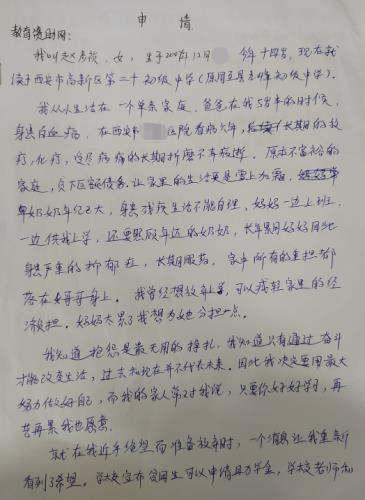 申 请
教育资助网：
我叫赵彦孩，女，生于2007年12月 今年十四岁，现在就
读于西安市高新区第二十初级中学（原周至县 初级中学）。
我从小生活在一个单亲家庭，爸爸在我5岁半的时候，
身患白血病，在西安市 医院看病六年，后续长期的放
疗，化疗，受尽病痛的长期折磨不幸病逝。原本不富裕的
家庭，负下巨额债务，让家里的生活更是雪上加霜，
奶奶年纪已大，身患残疾生活不能自理，妈妈一边上班，
一边供我上学，还要照顾年迈的奶奶，长年累月妈妈因此
身患严重的抑郁症，长期服药，家中所有的重担都
落在妈妈身上。我曾经想放弃上学，可以减轻家里的经
济负担。妈妈太累了我想为她分担一点。
我知道抱怨是最无用的挣扎，我知道只有通过奋斗
才能改变生活，过去和现在并不代表未来。因此我决定要用最大
努力做好自己，而我的家人常对我说，只要你好好学习，再
苦再累我也愿意。
就在我近乎绝望而准备放弃时，一个消息让我重新
看到了希望。学校宣布贫困生可以申请助学金，学校老师和